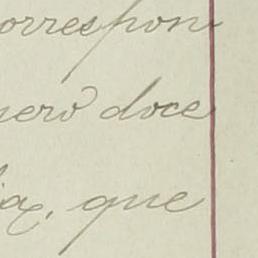 orrespon
nero doce
ia, que